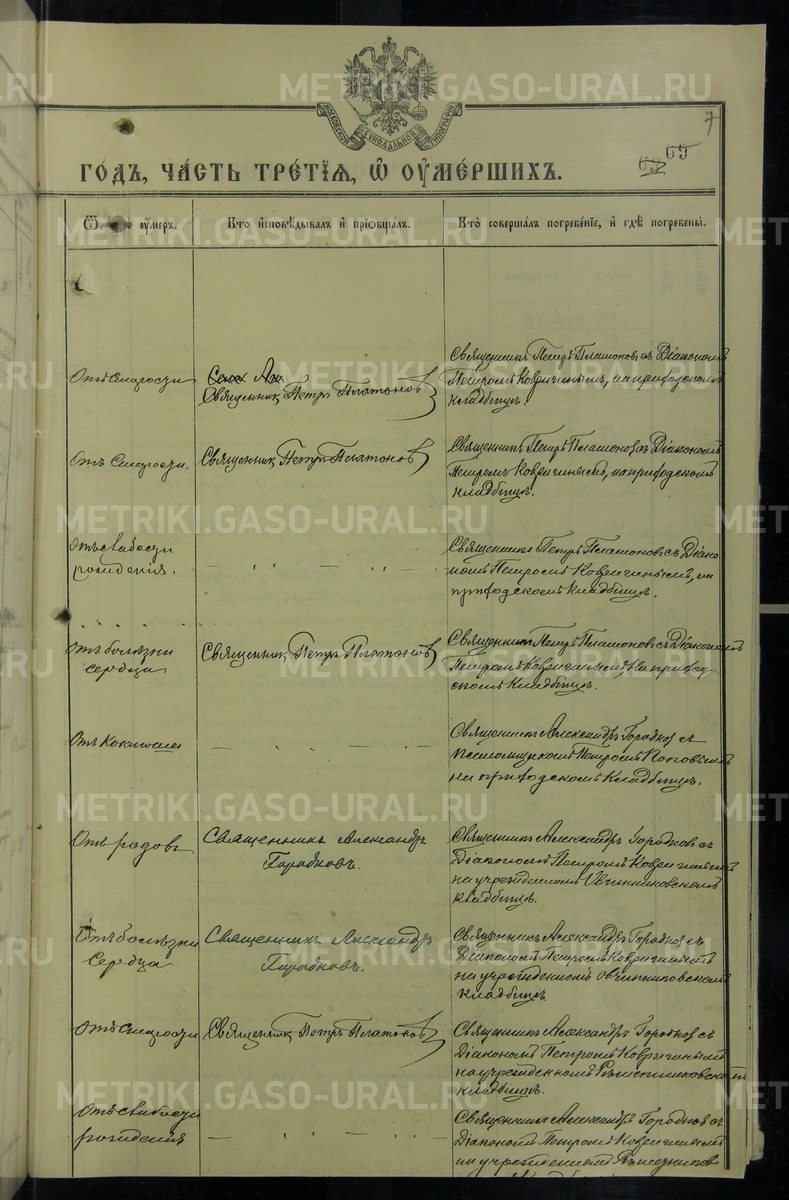 METRIKI.GASO-URAL.RU
МОСКОВСКОЙ СѴНОДАЛЬНОЙ ТИПОГРАФІИ
7
69 65
ГОДЪ, ЧА́СТЬ ТРЕ́ТІѦ, Ѡ ОУМЕ́РШИХЪ.
Ѿ оумеръ.
Кто исповѣдывалъ и приобщалъ.
Кто совершалъ погребенїе, и гдѣ погребены.
Отъ Старости
Священник Петръ Платоновъ
Священникъ Петръ Платоновъ съ Діакономъ
Петромъ Ковригинымъ, на приходскомъ
кладбищѣ.
Отъ Старости.
Священник Петръ Платоновъ
Священникъ Петръ Платоновъ съ Діакономъ
Петромъ Ковригинымъ, на приходскомъ
кладбищѣ.
Отъ слабости
рождения.
— „ — „ —
Священникъ Петръ Платоновъ съ Діако
номъ Петромъ Ковригинымъ, на
приходскомъ кладбищѣ.
Отъ болѣзни
сердца
Священник Петръ Платоновъ
Священникъ Петръ Платоновъ съ Діакономъ
Петромъ Ковригинымъ, на приход
скомъ кладбищѣ.
Отъ Коклюша
— „ — „ —
Священникъ Александръ Городковъ съ
Псаломщикомъ Петромъ Поповымъ
на приходскомъ кладбищѣ.
Отъ родовъ
Священникъ Александръ
Городковъ.
Священникъ Александръ Городковъ съ
Діакономъ Петромъ Ковригинымъ
на учрежденномъ Овчинниковскомъ
кладбищѣ.
Отъ болѣзни
Сердца
Священникъ Александръ
Городковъ.
Священникъ Александръ Городковъ съ
Діакономъ Петромъ Ковригинымъ
на учрежденномъ Овчинниковскомъ
кладбищѣ
Отъ Старости
Священник Петръ Платоновъ
Священникъ Александръ Городковъ съ
Діакономъ Петромъ Ковригинымъ
на учрежденномъ
кладбищѣ.
Отъ слабости
рождения
— „ — „ —
Священникъ Александръ Городковъ съ
Діакономъ Петромъ Ковригинымъ
на учрежденномъ